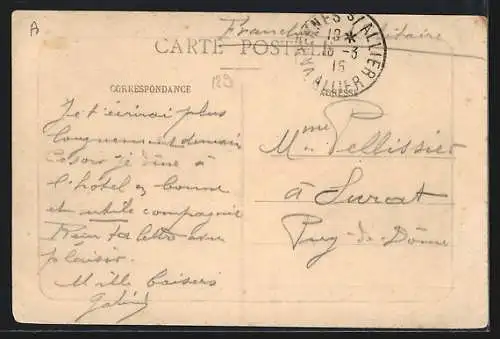 A
Franchise Militaire
CARTE POSTALE
VARENNES S/ALLIER
18 *
16 -3
15
ALLIER
CORRESPONDANCE
ADRESSE
189
Je t'écrirai plus
longuement demain
Ce soir je dîne à
l'hotel en bonne
et utile compagnie
Reçu ta lettre avec
plaisir.
Mille baisers
Mme Pellissier
à Surat
Puy-de-Dôme